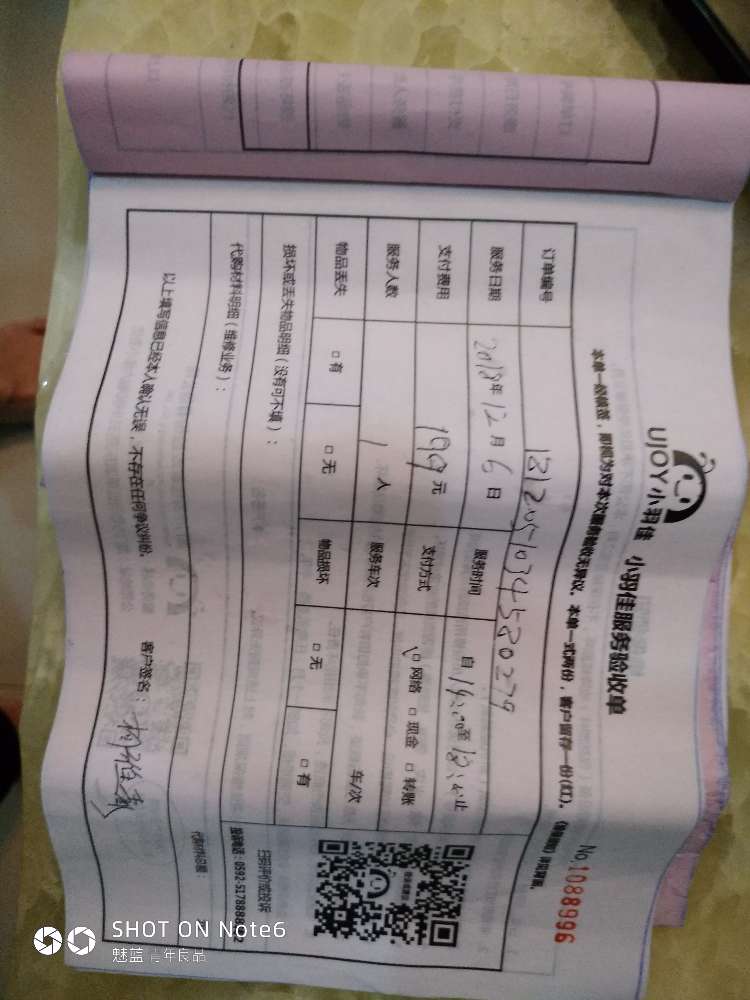 UJOY小羽佳 小羽佳服务验收单
No.1088996
本单一经填签,即视为对本次服务验收无异议。本单一式两份,客户留存一份(红)。
订单编号 1812051034580279
服务日期 2018年12月6日 服务时间 自
支付费用 199元 支付方式 ☑网络 □现金 □转账
服务人数 1人 服务车次 车/次
物品丢失 □有 □无 物品损坏 □无 □有
损坏或丢失物品明细(没有可不填):
扫码评价或投诉
代购材料明细(维修业务):
代购材料总额:
以上填写信息已经本人确认无误,不存在任何争议纠纷。 客户签名:
SHOT ON Note6
魅蓝 青年良品